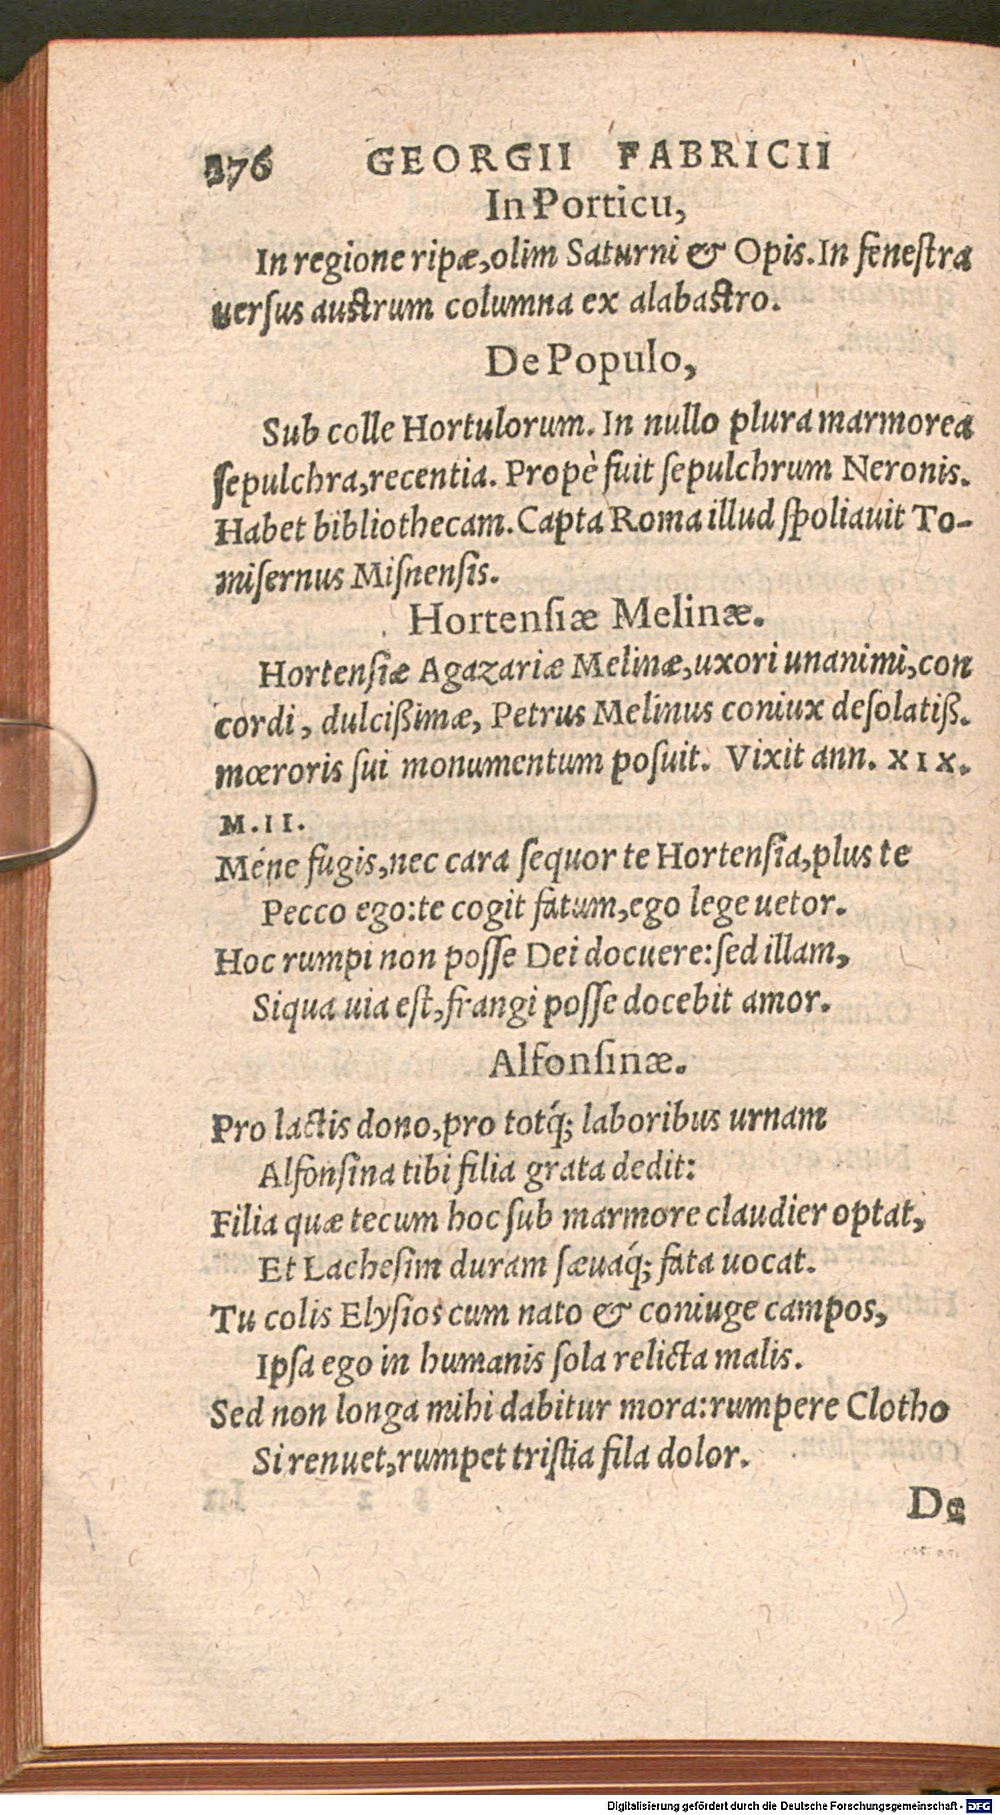 276 GEORGII FABRICII
In Porticu,
In regione ripæ, olim Saturni & Opis. In feneſtra
uerſus auſtrum columna ex alabaſtro.
De Populo,
Sub colle Hortulorum. In nullo plura marmorea
ſepulchra, recentia. Propè fuit ſepulchrum Neronis.
Habet bibliothecam. Capta Roma illud ſpoliauit To-
miſernus Miſnenſis.
Hortenſiæ Melinæ.
Hortenſiæ Agazariæ Melinæ, uxori unanimi, con
cordi, dulcißimæ, Petrus Melinus coniux deſolatiß.
mœroris ſui monumentum poſuit. Vixit ann. XIX.
M. II.
Méne fugis, nec cara ſequor te Hortenſia, plus te
Pecco ego: te cogit fatum, ego lege uetor.
Hoc rumpi non poſſe Dei docuere: ſed illam,
Siqua uia eſt, frangi poſſe docebit amor.
Alfonſinæ.
Pro lactis dono, pro totq́; laboribus urnam
Alfonſina tibi filia grata dedit:
Filia quæ tecum hoc ſub marmore claudier optat,
Et Lacheſim duram ſæuaq́; fata uocat.
Tu colis Elyſios cum nato & coniuge campos,
Ipſa ego in humanis ſola relicta malis.
Sed non longa mihi dabitur mora: rumpere Clotho
Si renuet, rumpet triſtia fila dolor.
De
Digitalisierung gefördert durch die Deutsche Forschungsgemeinschaft - DFG